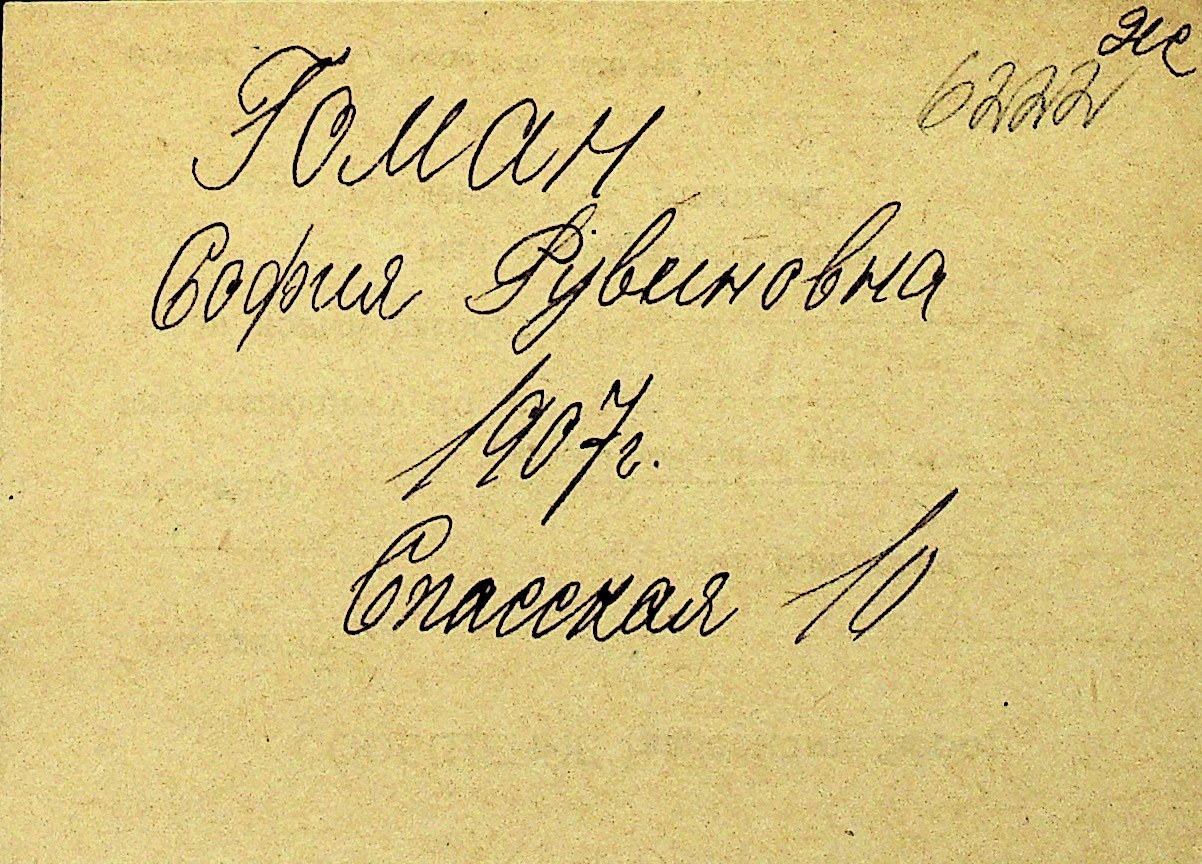 6222
Гоман
София Рувиновна
1907г.
Спасская 10